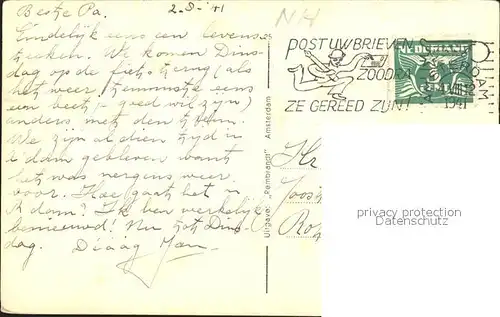 Beste Pa.
2-8-'41
NH
Eindelijk eens een levens
teeken. We komen Dins-
dag op de fiets terug (als
het weer tenminste eens
een beetje goed wil zijn)
anders met den trein.
We zijn al dien tijd in
A'dam gebleven want
het was nergens weer
voor. Hoe gaat het in
R'dam? Ik ben werkelijk
benieuwd! Nu tot Dins-
dag. Dáág Jan
Uitgave: „Rembrandt" Amsterdam
POST UW BRIEVEN
ZOODRA
ZE GEREED ZIJN!
NEDERLAND
1941
Hr
Joos
Ro
privacy protection
Datenschutz